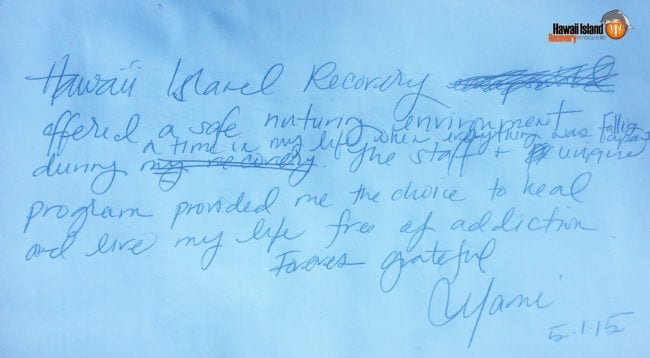 Hawaii Island
Recovery embrace life
Hawaii Island Recovery
offered a safe nuturing environment
a time in my life when everything was falling apart
during my recovery. The staff + unqiue
program provided me the choice to heal
and live my life free of addiction
Forever grateful
5.1.15